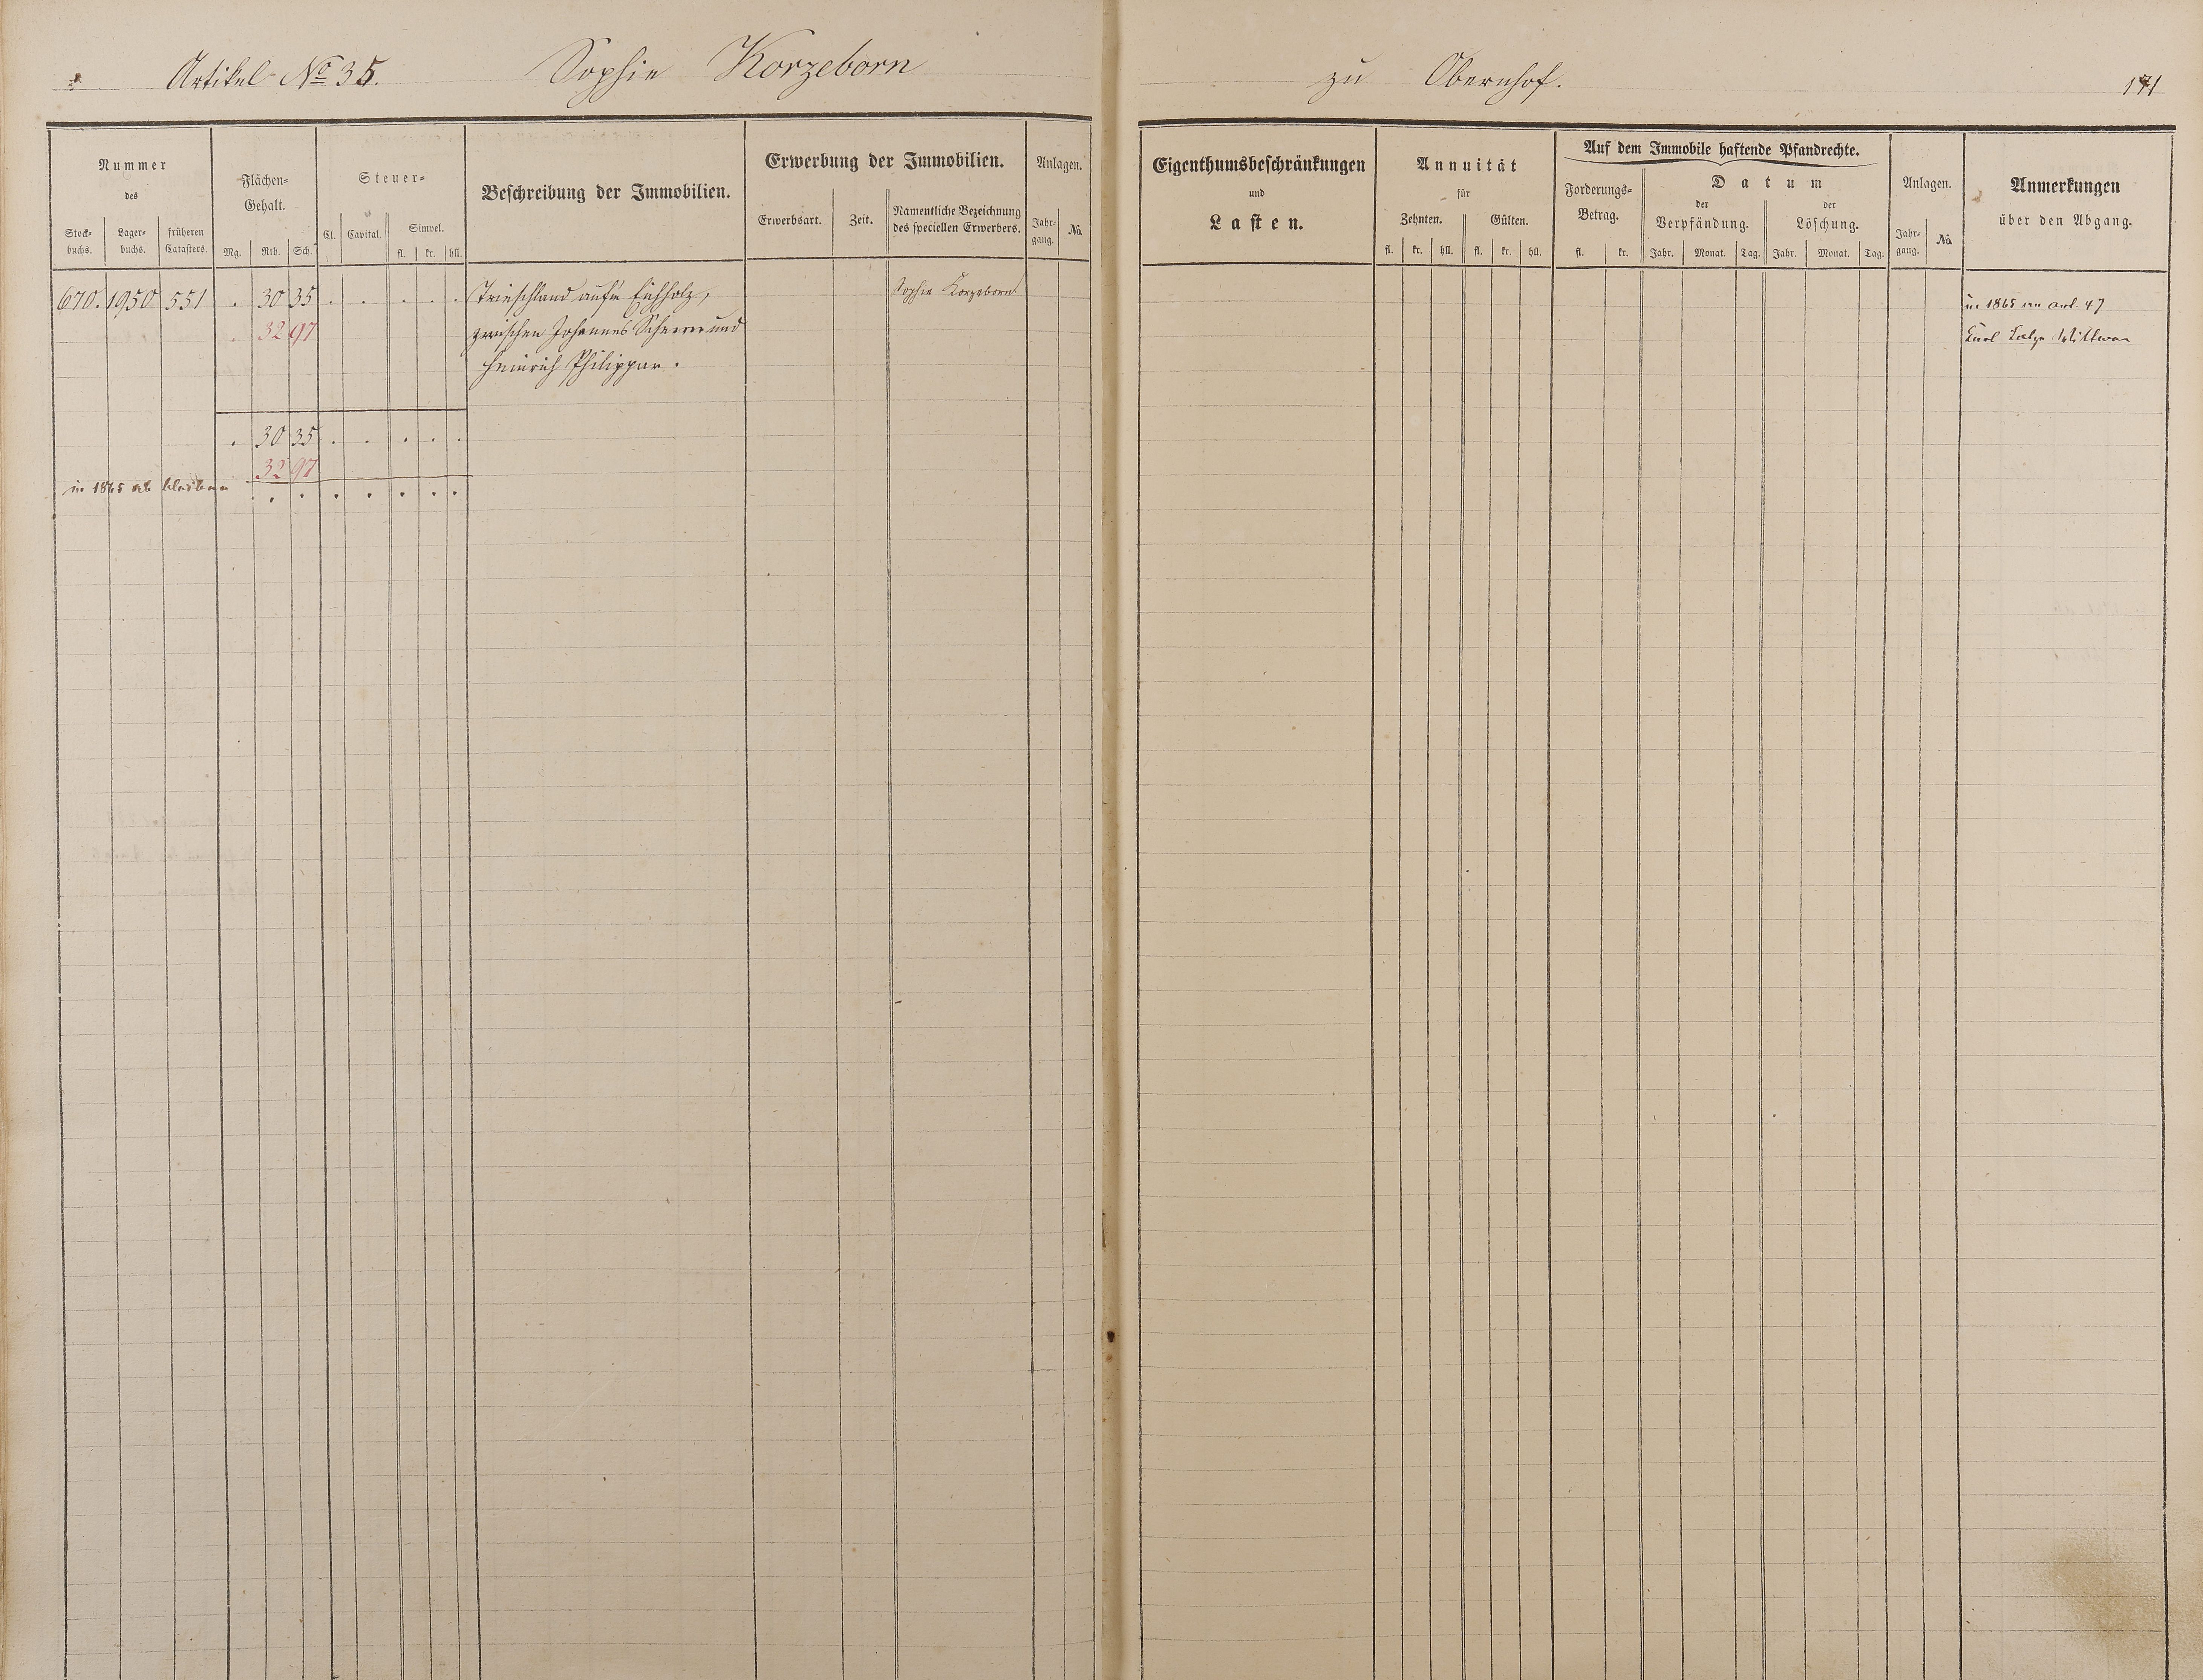 Artikel No 35. Sophie Korzeborn zu Obernhof. 171
Nummer
des
Stock-
buchs.
Lager-
buchs.
früheren
Catasters.
Flächen-
Gehalt.
Mg. Rth. Sch.
Steuer-
Cl. Capital.
Simpel.
fl. kr. hll.
Beschreibung der Immobilien.
Erwerbung der Immobilien.
Erwerbsart. Zeit.
Namentliche Bezeichnung
des speciellen Erwerbers.
Anlagen.
Jahr-
gang.
No.
Eigenthumsbeschränkungen
und
Lasten.
Annuität
für
Zehnten. Gülten.
fl. kr. hll. fl. kr. hll.
Auf dem Immobile haftende Pfandrechte.
Forderungs-
Betrag.
fl. kr.
Datum
der
Verpfändung.
der
Löschung.
Jahr. Monat. Tag. Jahr. Monat. Tag.
Anlagen.
Jahr-
gang.
No.
Anmerkungen
über den Abgang.
670. 1950 551 . 30 35 . . . . . Trieschland auf'm Eichholz, Sophie Korzeborn in 1865 an art. 47
. 32 97 zwischen Johannes Scherer und Karl Wittwe
Heinrich Philippar.
. 30 35 . . . . .
32 97
in 1865 ab bleiben . . . . . . .